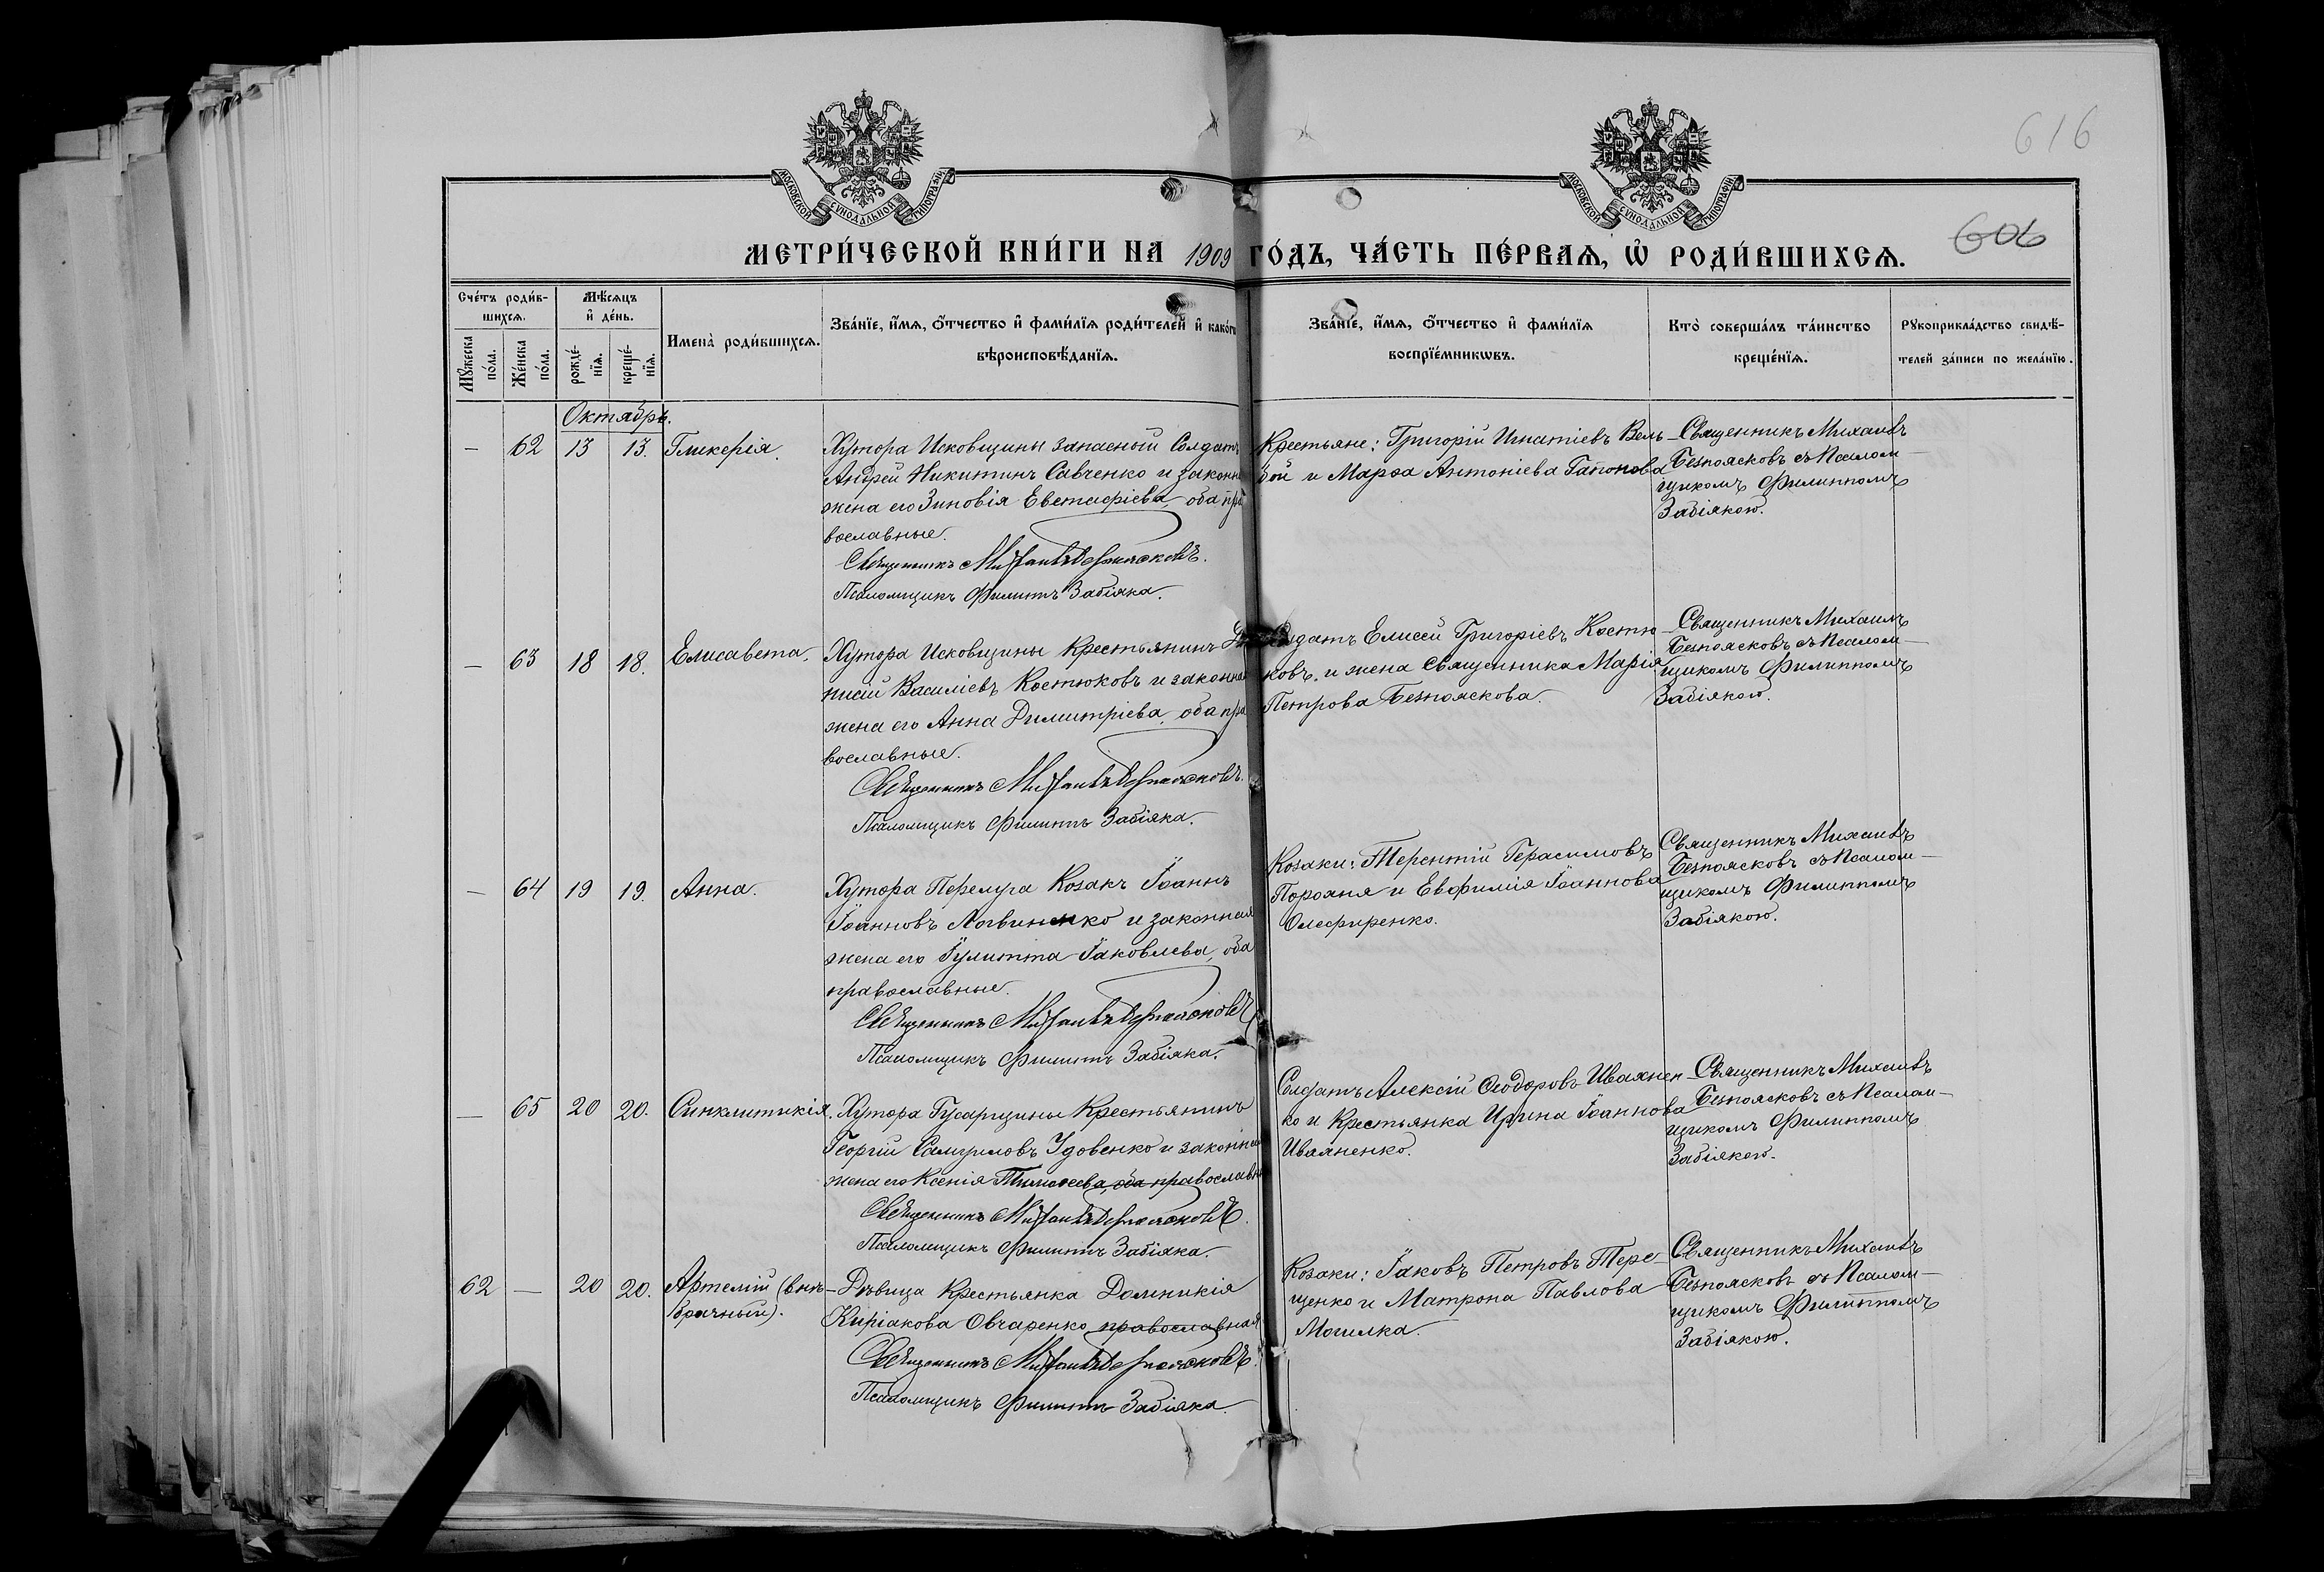 616
606
МОСКОВСКОЙ СѴНОДАЛЬНОЙ ТИПОГРАФІИ
МОСКОВСКОЙ СѴНОДАЛЬНОЙ ТИПОГРАФІИ
МЕТРИ́ЧЕСКОЙ КНИ́ГИ НА 1909 ГО́ДЪ, ЧА́СТЬ ПЕ́РВАѦ, Ѽ РОДИ́ВШИХСѦ.
Сче́тъ роди́в-
шихсѧ.
Мꙋ́жеска
по́ла.
Же́нска
по́ла.
Мѣ́сѧцъ
и҆ де́нь.
рожде́-
нїѧ.
креще́-
нїѧ.
Имена̀ роди́вшихсѧ.
Зва́нїе, и҆́мѧ, ѻ҆́тчество и҆ фами́лїѧ роди́телей и҆ како́гѡ
вѣроисповѣ́данїѧ.
Зва́нїе, и҆́мѧ, ѻ҆́тчество и҆ фами́лїѧ
воспрїе́мникѡвъ.
Кто̀ соверша́лъ та́инство
креще́нїѧ.
Рꙋкоприкла́дство свидѣ́-
телей за́писи по жела́нїю.
Октябрь.
— 62 13 13. Гликерія.
Хутора Исковщины запасный Солдатъ
Андрей Никитинъ Савченко и законн
жена его Зиновія Евстафіева, оба пра
вославные.
Священникъ Михаилъ Безпоясковъ.
Псаломщикъ Филиппъ Забіяка.
Крестьяне: Григорій Игнатіевъ Вель-
бой и Марѳа Антоніева Гапонова
Священникъ Михаилъ
Безпоясковъ съ Псалом-
щикомъ Филиппомъ
Забіякою.
— 63 18 18. Елисавета.
Хутора Исковщины Крестьянинъ Ді
нисій Василіевъ Костюковъ и законная
жена его Анна Димитріева, оба пра
вославные.
Священникъ Михаилъ Безпоясковъ.
Псаломщикъ Филиппъ Забіяка.
Солдатъ Елисей Григоріевъ Костю-
ковъ и жена Священника Марія
Петрова Безпояскова.
Священникъ Михаилъ
Безпоясковъ съ Псалом-
щикомъ Филиппомъ
Забіякою.
— 64 19 19. Анна.
Хутора Перелуга Козакъ Іоаннъ
Іоанновъ Логвиненко и законная
жена его Іулитта Іаковлева, оба
православные.
Священникъ Михаилъ Безпоясковъ
Псаломщикъ Филиппъ Забіяка.
Козаки: Терентій Герасимовъ
Порохня и Евфимія Іоаннова
Олефиренко.
Священникъ Михаилъ
Безпоясковъ съ Псалом-
щикомъ Филиппомъ
Забіякою.
— 65 20 20. Синклитикія.
Хутора Гусарщины Крестьянинъ
Георгій Самуиловъ Удовенко и законная
жена его Ксенія Тимоѳеева, оба православн
Священникъ Михаилъ Безпоясковъ.
Псаломщикъ Филиппъ Забіяка.
Солдатъ Алексій Ѳеодоровъ Ивахнен-
ко и Крестьянка Ирина Іоаннова
Ивахненко.
Священникъ Михаилъ
Безпоясковъ съ Псалом-
щикомъ Филиппомъ
Забіякою.
62 — 20 20. Артемій (внѣ-
брачный).
Дѣвица Крестьянка Домникія
Киріакова Овчаренко православная
Священникъ Михаилъ Безпоясковъ.
Псаломщикъ Филиппъ Забіяка.
Козаки: Іаковъ Петровъ Тере-
щенко и Матрона Павлова
Могилка.
Священникъ Михаилъ
Безпоясковъ съ Псалом-
щикомъ Филиппомъ
Забіякою.